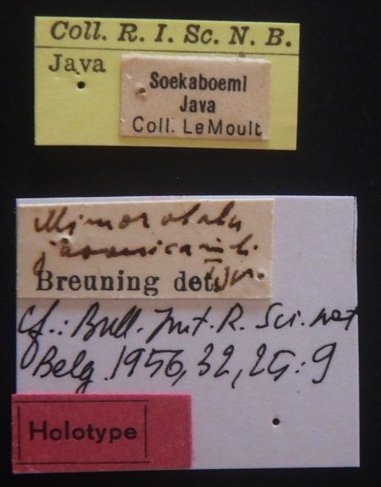 Coll. R. I. Sc. N. B.
Java
Soekaboemi
Java
Coll. Le Moult
Breuning det.
cf.: Bull. Inst. R. Sci. nat
Belg. 1956, 32, 25: 9
Holotype